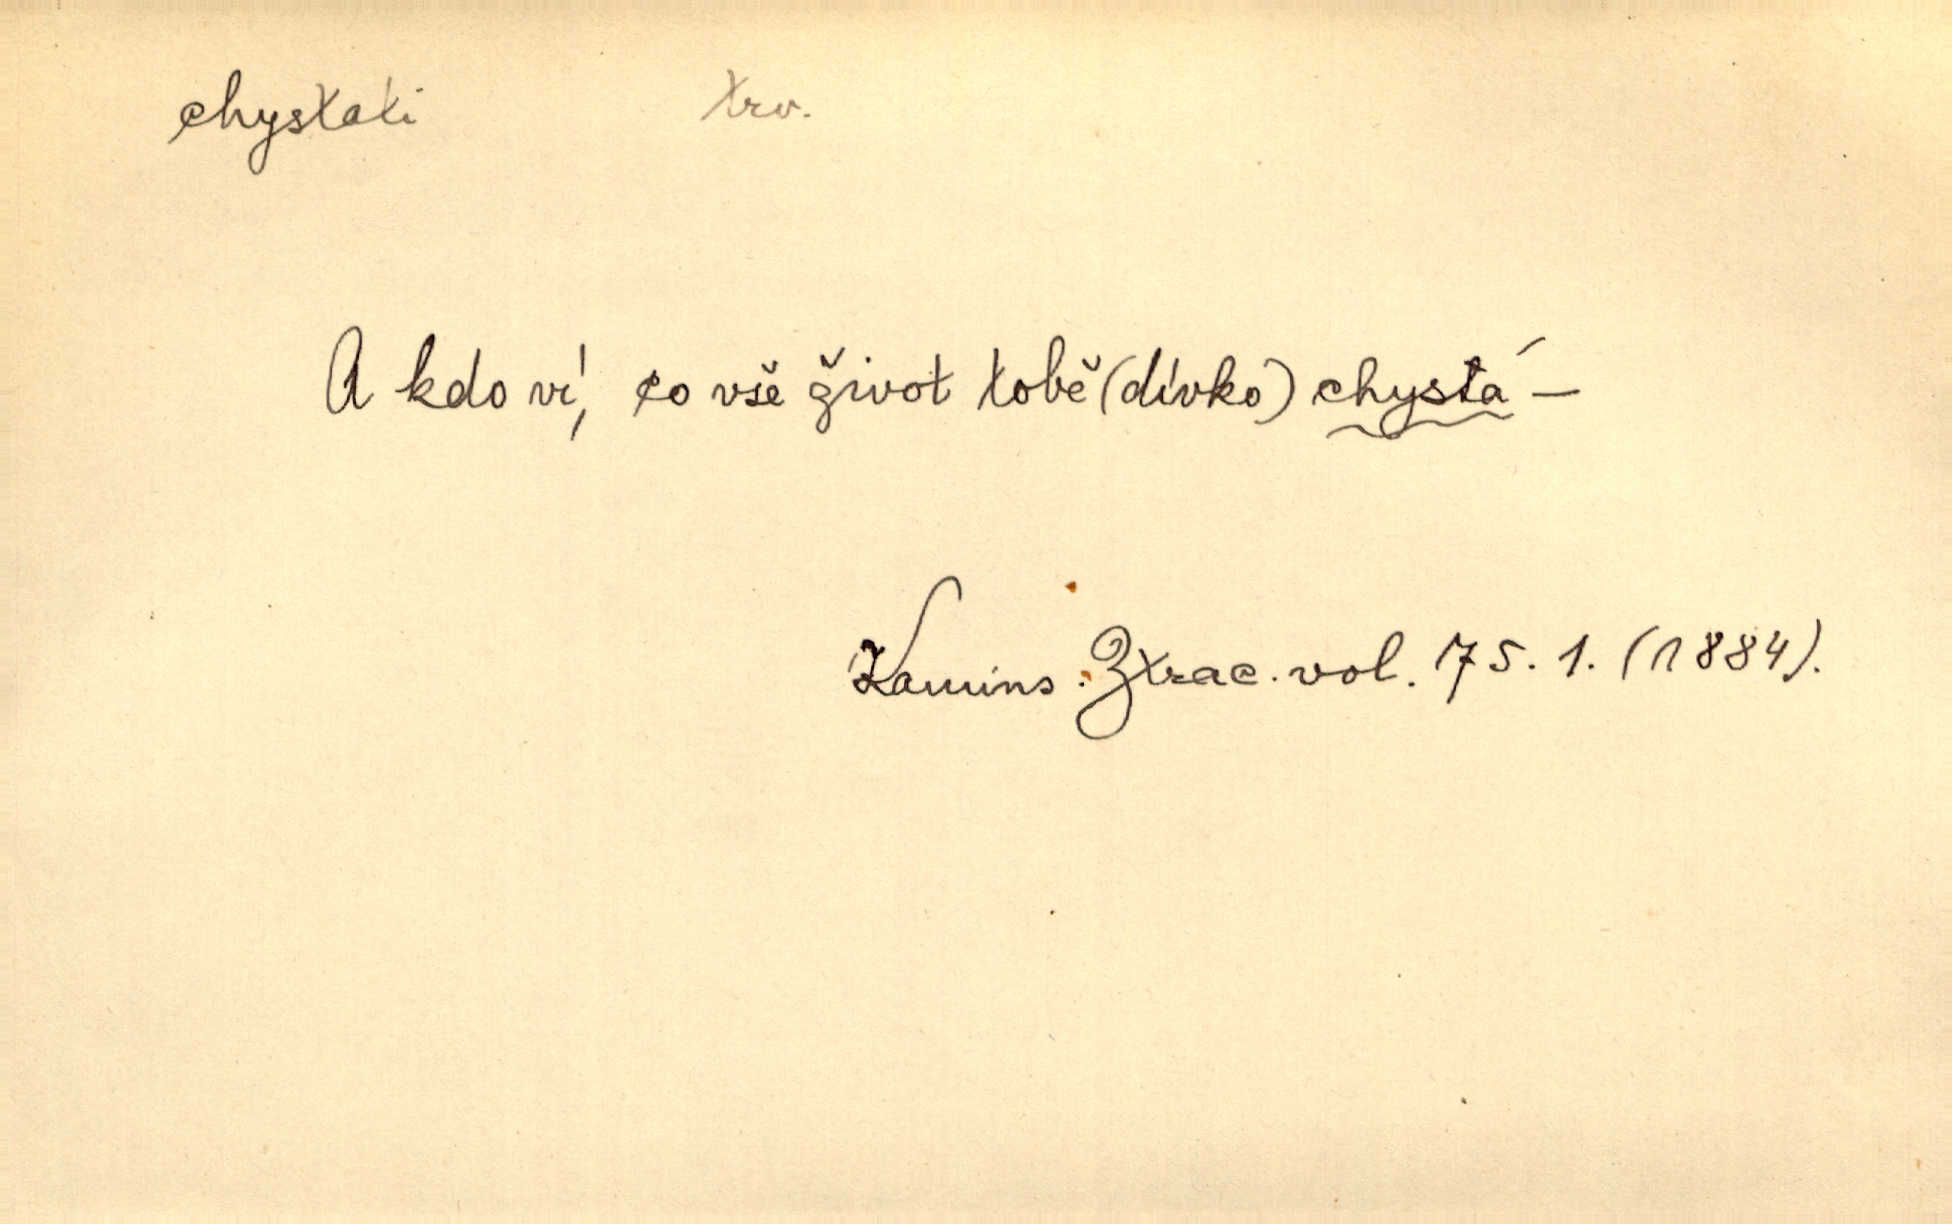 chystati trv.
A kdo ví, co vše život tobě (dívko) chystá –
Kamins. Ztrac. vol. 175. 1. (1884).